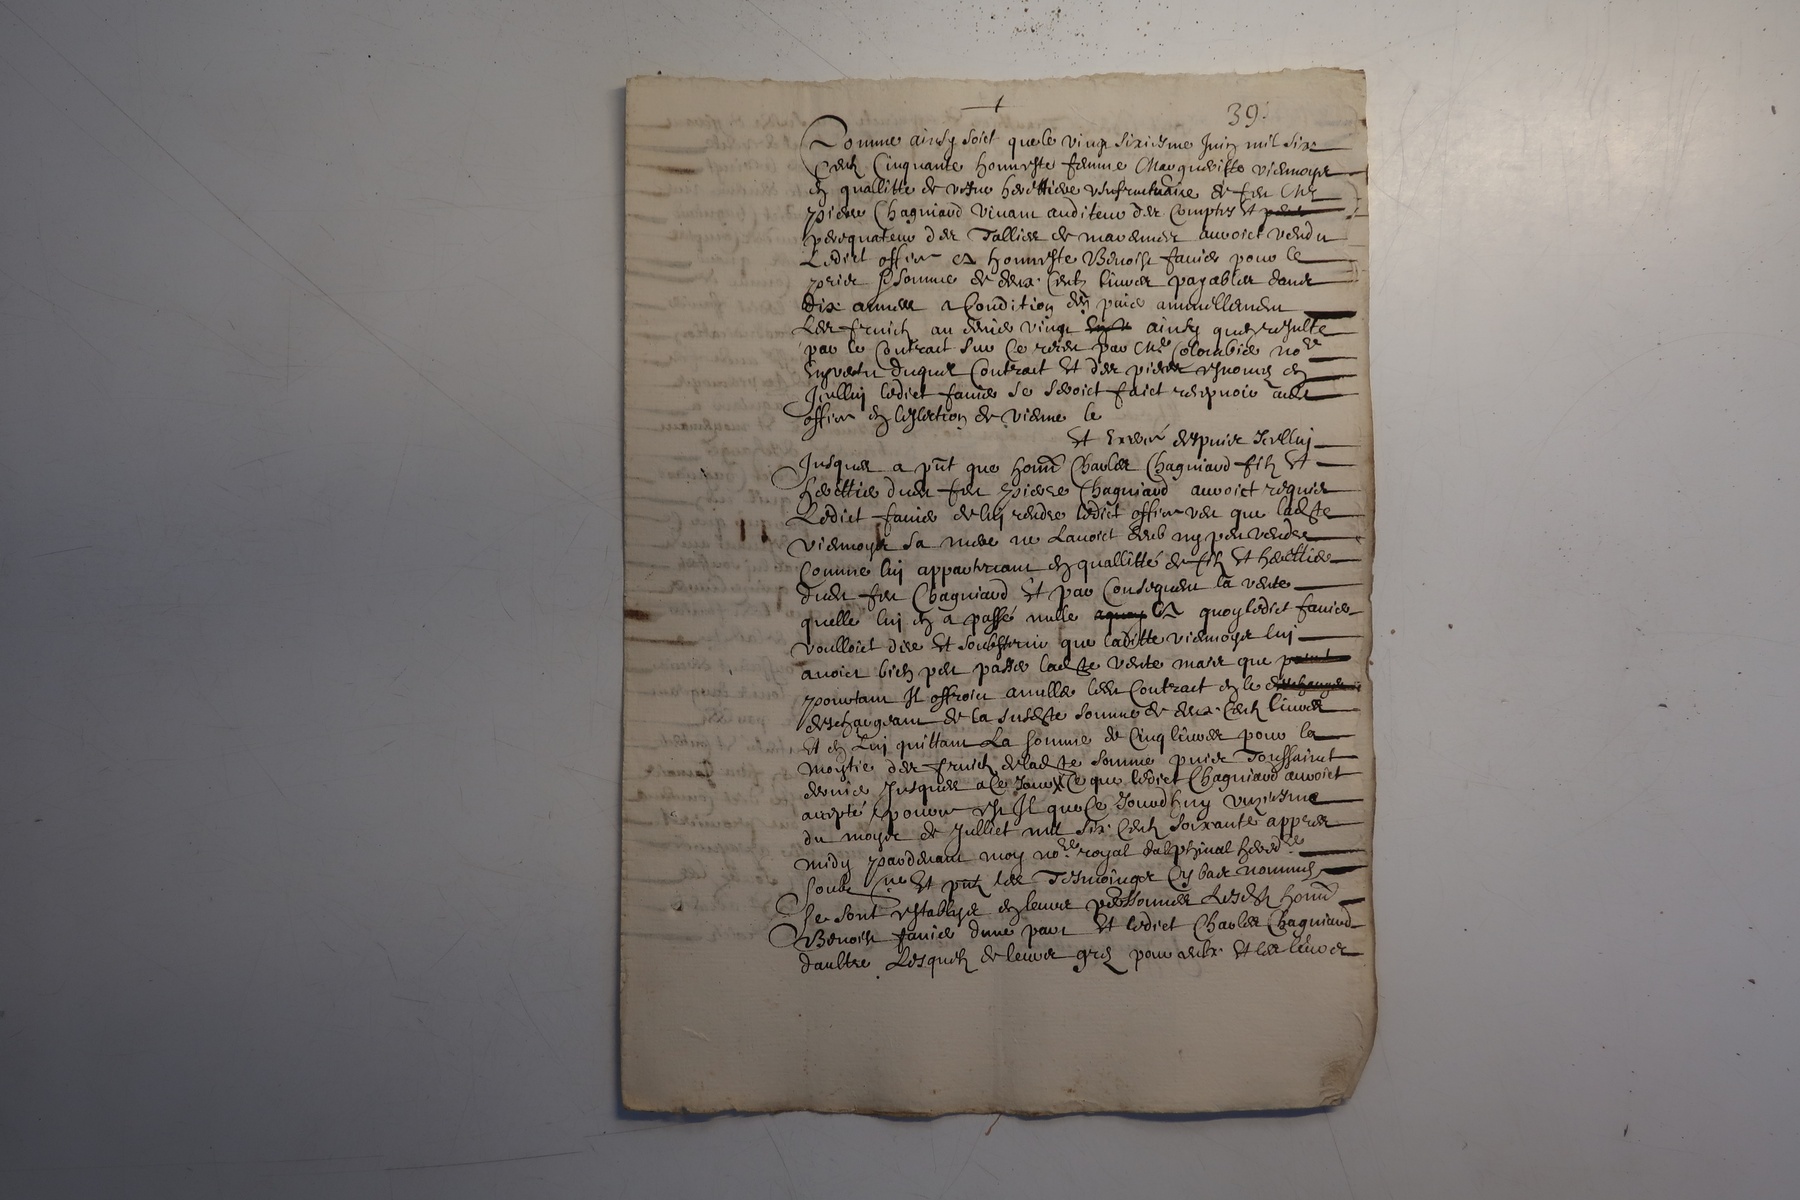 39
Comme ainsy soict que le vingt sixiesme Juin mil six
Cent Cinquante honneste femme Margueritte viemoys
en quallitte de vefve herettiere usufructuaire de feu Me
pierre Chagniard vivant auditeur des Comptes et
perequateur des Tallies de auvoict vendu
Ledict office a honneste Benoist favier pour le
prix et somme de deux Cents livres payables dans
dix annees a Condition den paier annuellement
Les fruicts au denier vingt ainsy quil resulte
par le Contract sur Ce receu par Me Colombier nore
En vertu duquel Contract et des pieces en
Icelluy ledict favier se seroict faict recepvoir audict
office en leslection de vienne le
et exercé despuis Icelluy
Jusques a pnt que honn Charles Chagniard filz et
herettier dudt feu pierre Chagniard auvoict requis
Ledict favier de luy rendre ledict office veu que ladte
viemoys sa mere ne Lavoict deub ny peu vendre
Comme luy appartenant en quallitté de filz et herettier
dudt feu Chagniard et par Consequent la vente
quelle luy en a passé nulle a quoy ledict favier
voulloict dire et soubstenir que laditte viemoys luy
avoict bien peu passer ladte vente mais que
pourtant Il offroict annuller ledt Contract en le
deschargeant de la susdte somme de deux Cents livres
Et en Luy quittant La somme de Cinq livres pour la
moytie des fruicts de ladte somme puis Toussainct
dernier Jusques a Ce Jour Ce que ledict Chagniard auvoict
accepté pour Il que Ce Jourdhuy unziesme
du moys de Julliet mil six Cents soixante appres
midy pardevant moy nore royal dalphinal heredre
soubzne et pnts les Tesmoings Cy bas nommés
se sont establys en leurs personnes Lesdts honn
Benoist favier dune part et ledict Charles Chagniard
daultre Lesquels de leurs grés pour eulx et les leurs